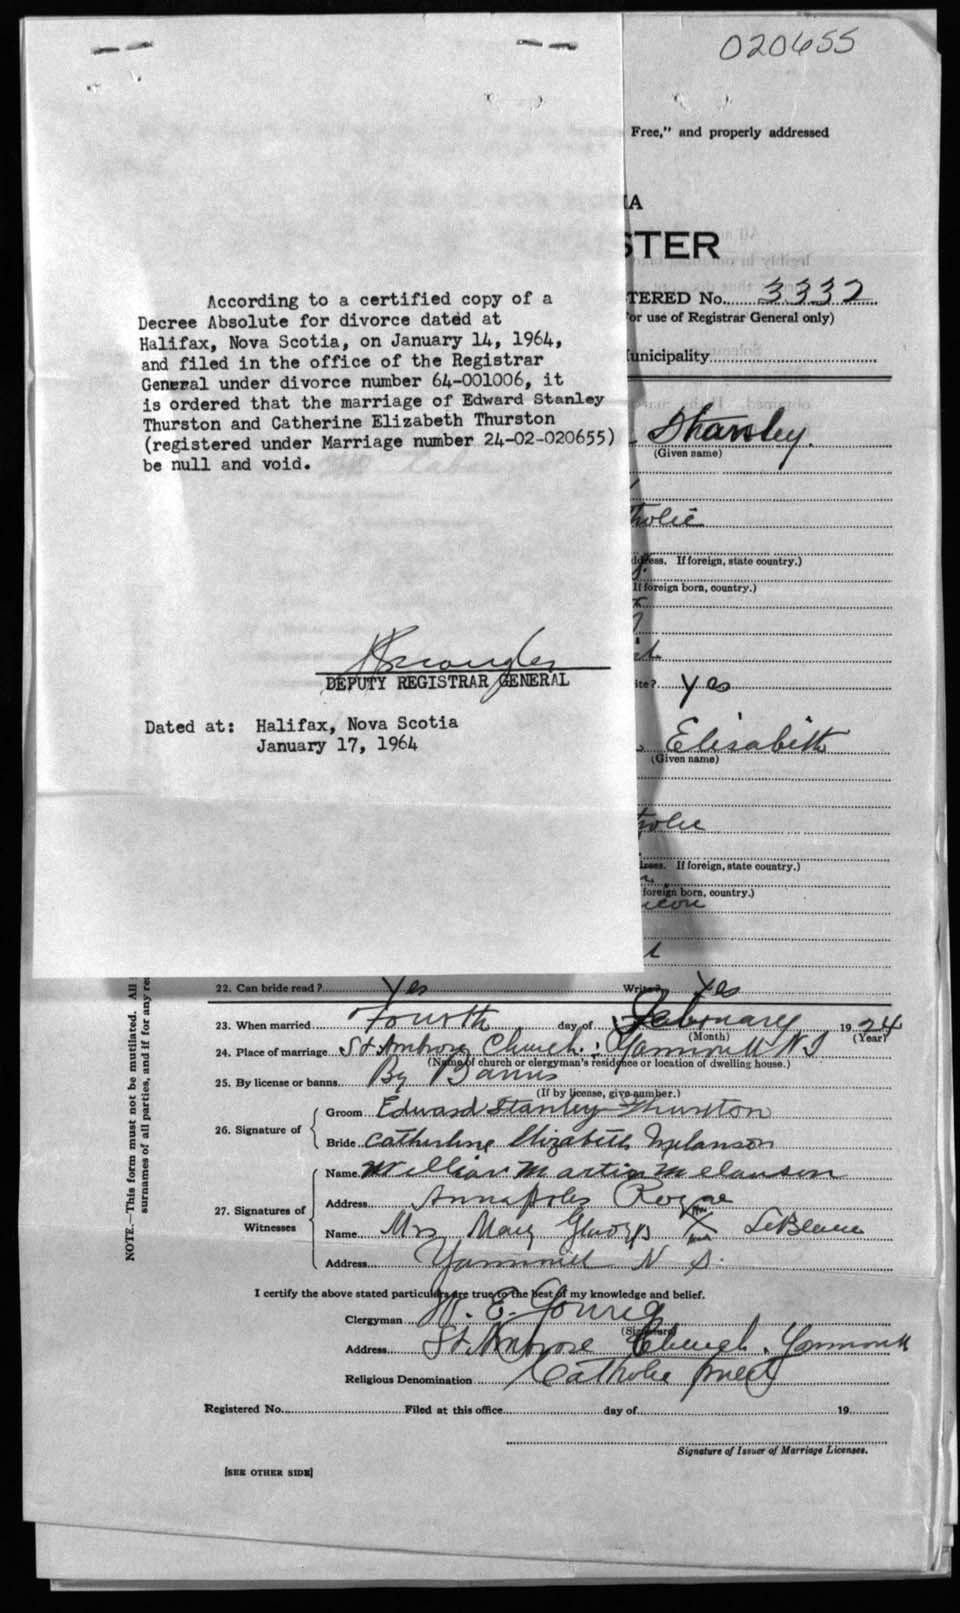 020655
Free," and properly addressed
IA
STER
TERED No. 3332
or use of Registrar General only)
unicipality
According to a certified copy of a
Decree Absolute for divorce dated at
Halifax, Nova Scotia, on January 14, 1964,
and filed in the office of the Registrar
General under divorce number 64-001006, it
is ordered that the marriage of Edward Stanley
Thurston and Catherine Elizabeth Thurston
(registered under Marriage number 24-02-020655)
be null and void.
DEPUTY REGISTRAR GENERAL
Dated at: Halifax, Nova Scotia
January 17, 1964
Stanley.
(Given name)
tholic
dress. If foreign, state country.)
If foreign born, country.)
ite? Yes
Elisabeth
(Given name)
tholic
dress. If foreign, state country.)
foreign born, country.)
22. Can bride read? Yes Write? Yes
23. When married Fourth day of February 1924
(Month) (Year)
24. Place of marriage St Ambrose Church : Yarmouth N S
(Name of church or clergyman's residence or location of dwelling house.)
25. By license or banns By Banns
(If by license, give number.)
26. Signature of Groom Edward Stanley Thurston
Bride Catherine Elizabeth Melanson
27. Signatures of Witnesses
Name William Martin Melanson
Address Annapolis Royal
Name Mrs Mary Gladys X LeBlanc
Address Yarmouth N S.
I certify the above stated particulars are true to the best of my knowledge and belief.
Clergyman W. E. Young
(Signature)
Address St. Ambrose Church. Yarmouth
Religious Denomination Catholic Priest
Registered No. Filed at this office day of 19
Signature of Issuer of Marriage Licenses.
[SEE OTHER SIDE]
NOTE.—This form must not be mutilated. All
surnames of all parties, and if for any re